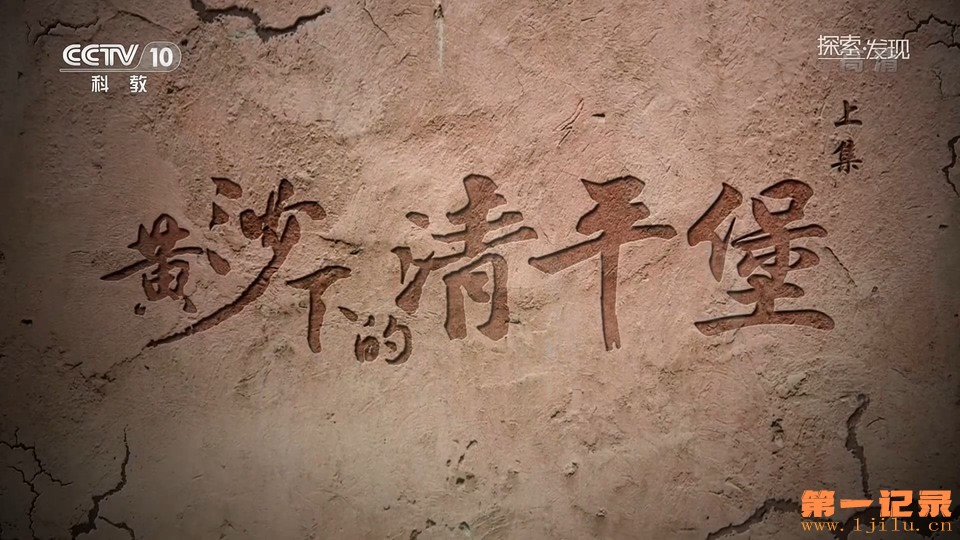 CCTV 10
科教
探索·发现
高清
上集
黄沙下的清平堡
第一记录
www.1jilu.cn